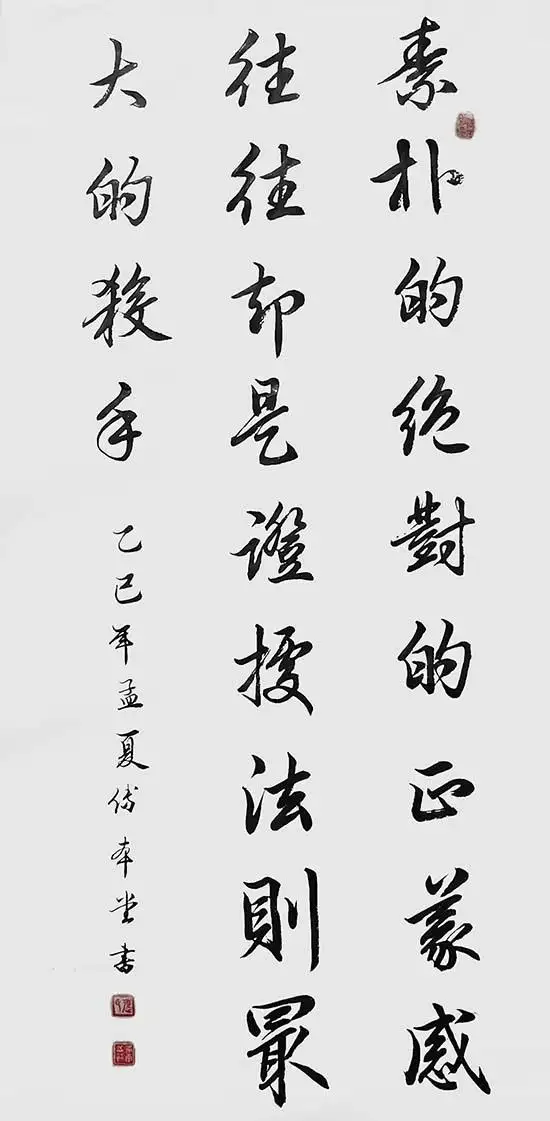 素朴的绝對的正義感
往往却是證據法則最
大的殺手
乙巳年孟夏傅本堂書